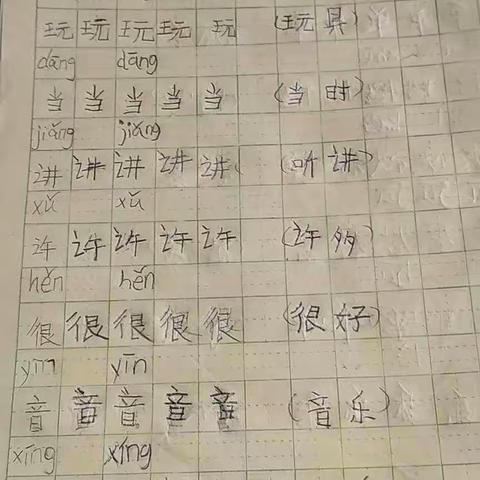 玩 玩 玩 玩 玩 (玩具)
dāng dāng
当 当 当 当 当 (当时)
jiǎng jiǎng
讲 讲 讲 讲 讲 (听讲)
xǔ xǔ
许 许 许 许 许 (许多)
hěn hěn
很 很 很 很 很 (很好)
yīn yīn
音 音 音 音 音 (音乐)
xíng xíng